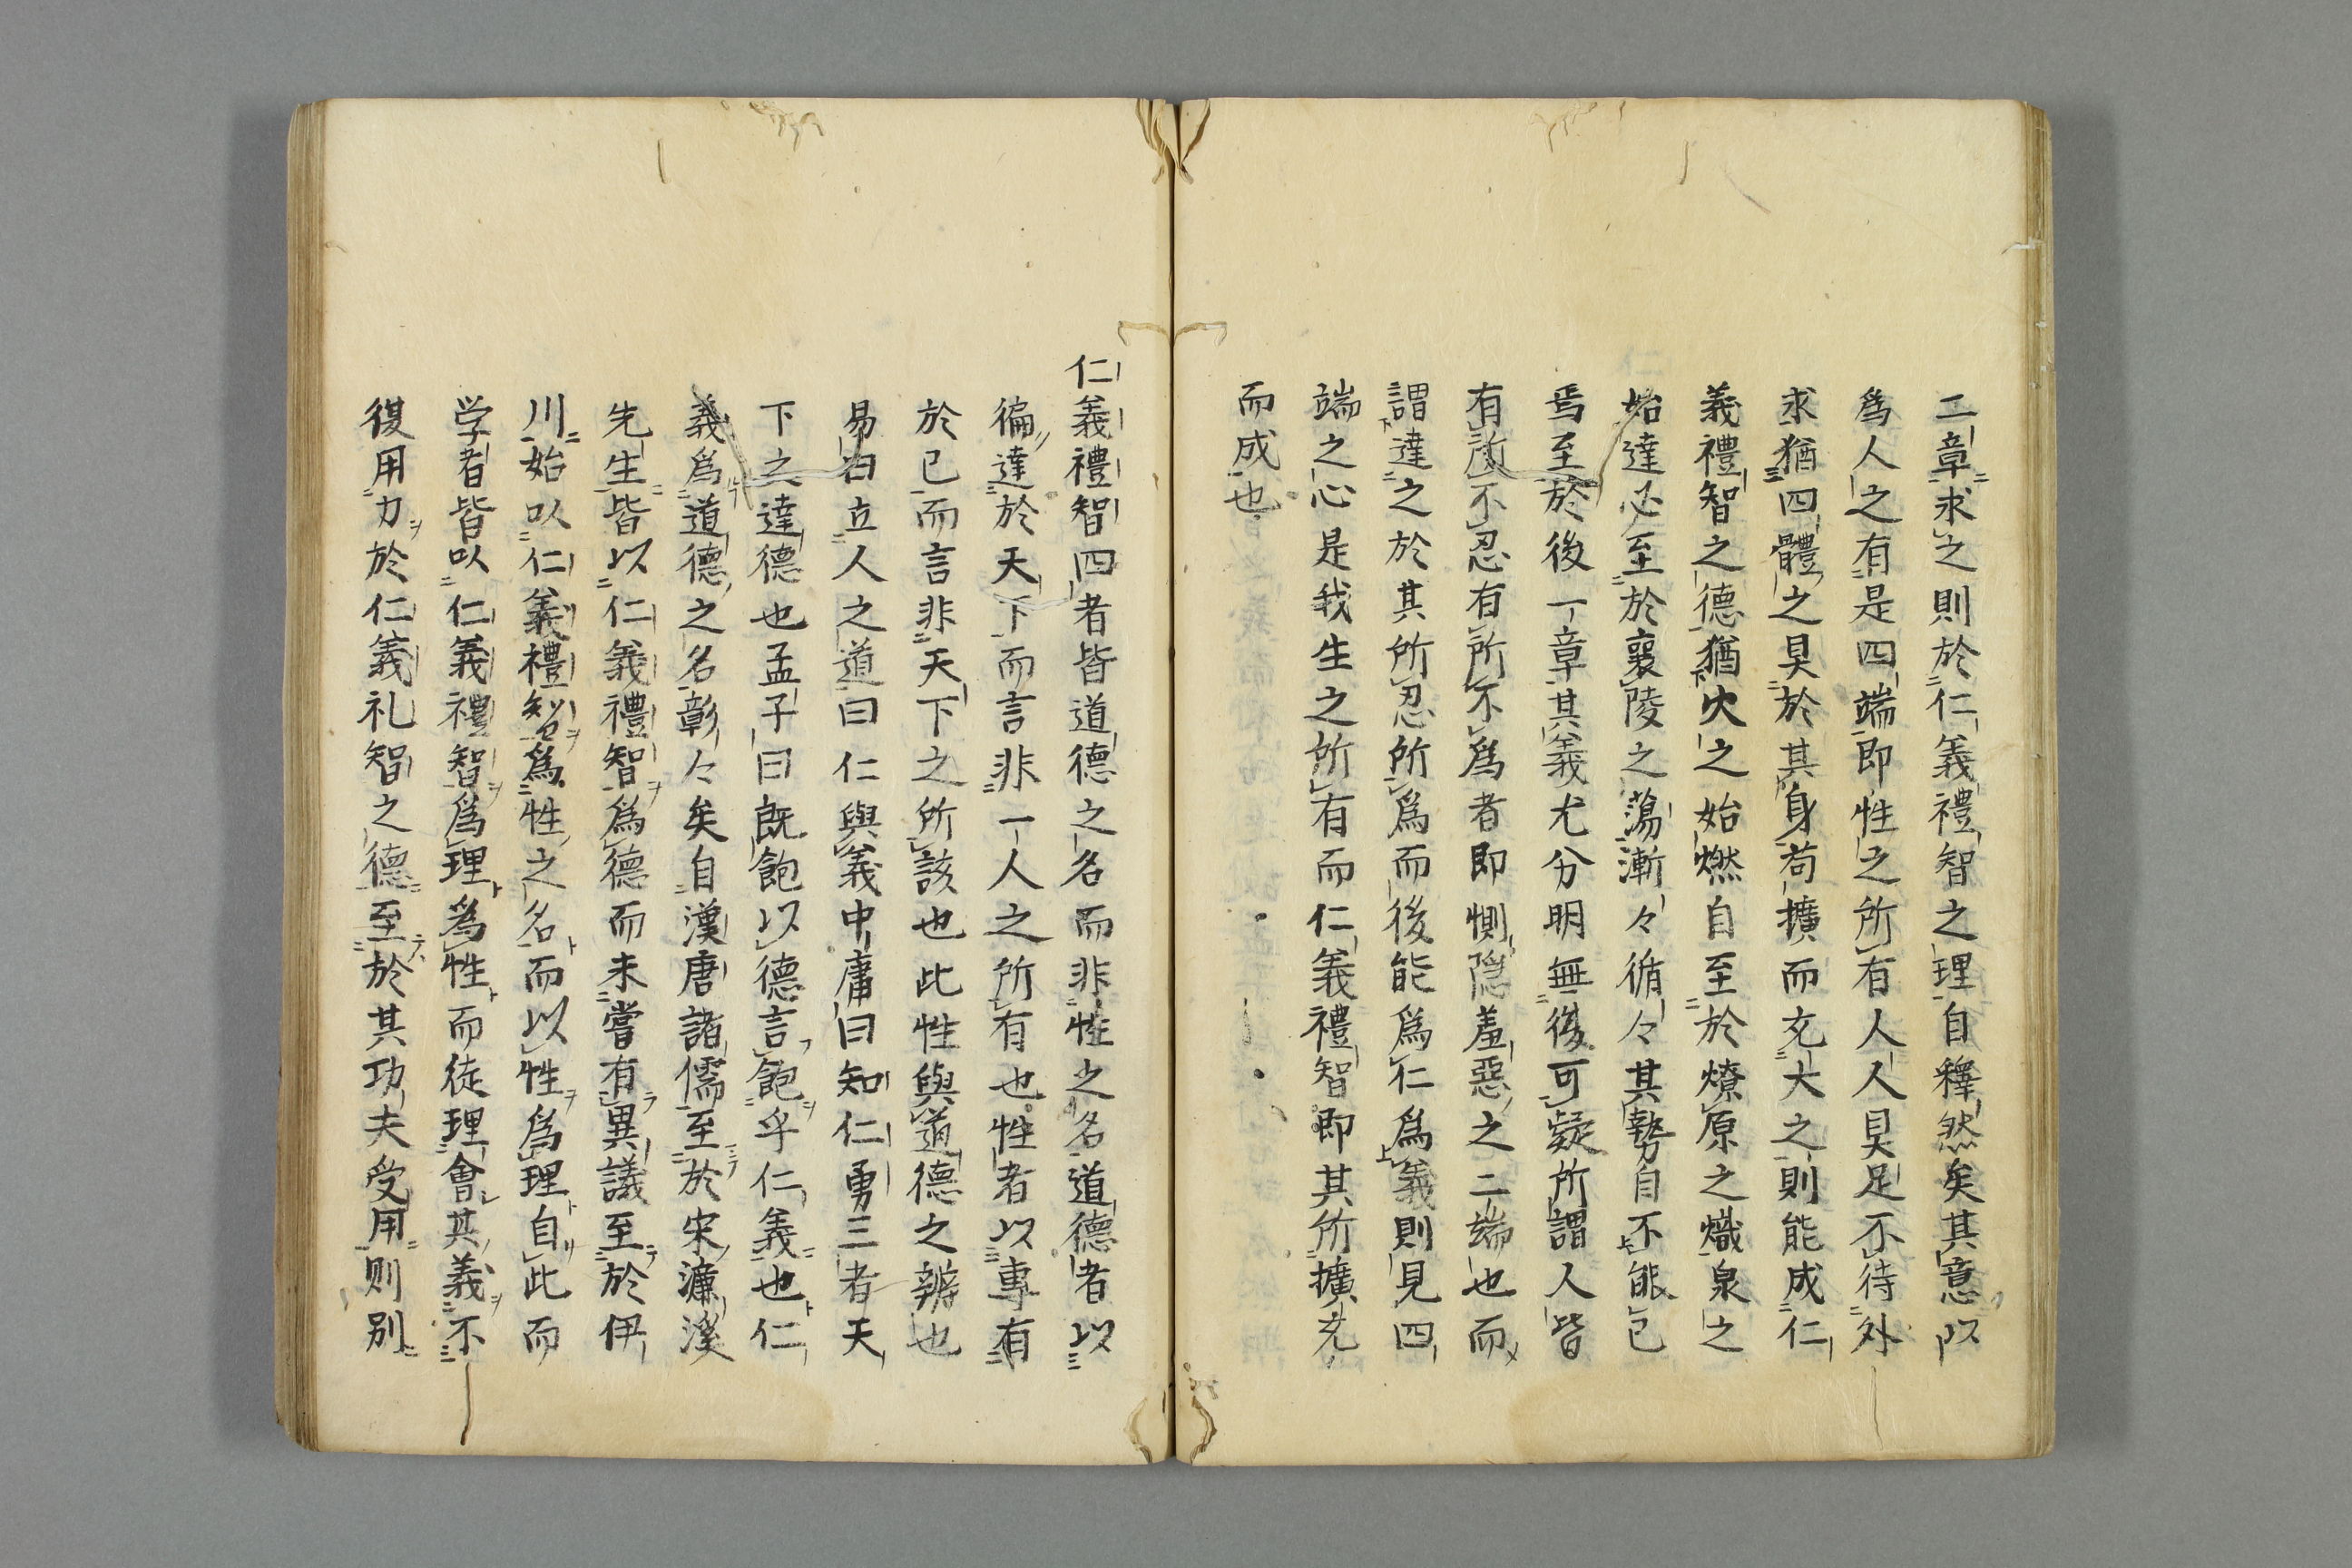 二章求之則於仁義禮智之理自釋然矣其意以
爲人之有是四端即性之所有人人具足不待外
求猶四體之具於其身苟擴而充大之則能成仁
義禮智之德猶火之始燃自至於燎原之熾泉之
始達必至於襄陵之蕩漸々循々其勢自不能已
焉至於後一章其義尤分明無後可疑所謂人皆
有所不忍有所不爲者即惻隠羞惡之二端也而
謂達之於其所忍所爲而後能爲仁爲義則見四
端之心是我生之所有而仁義禮智即其所擴充
而成也
仁義禮智四者皆道德之名而非性之名道德者以
徧達於天下而言非一人之所有也性者以專有
於己而言非天下之所該也此性與道德之辨也
易曰立人之道曰仁與義中庸曰知仁勇三者天
下之達德也孟子曰既飽以德言飽乎仁義也仁
義爲道德之名彰々矣自漢唐諸儒至於宋濂溪
先生皆以仁義禮智爲德而未嘗有異議至於伊
川始以仁義禮智爲性之名而以性爲理自此而
学者皆以仁義禮智爲理爲性而徒理會其義不
復用力於仁義礼智之德至於其功夫受用則別